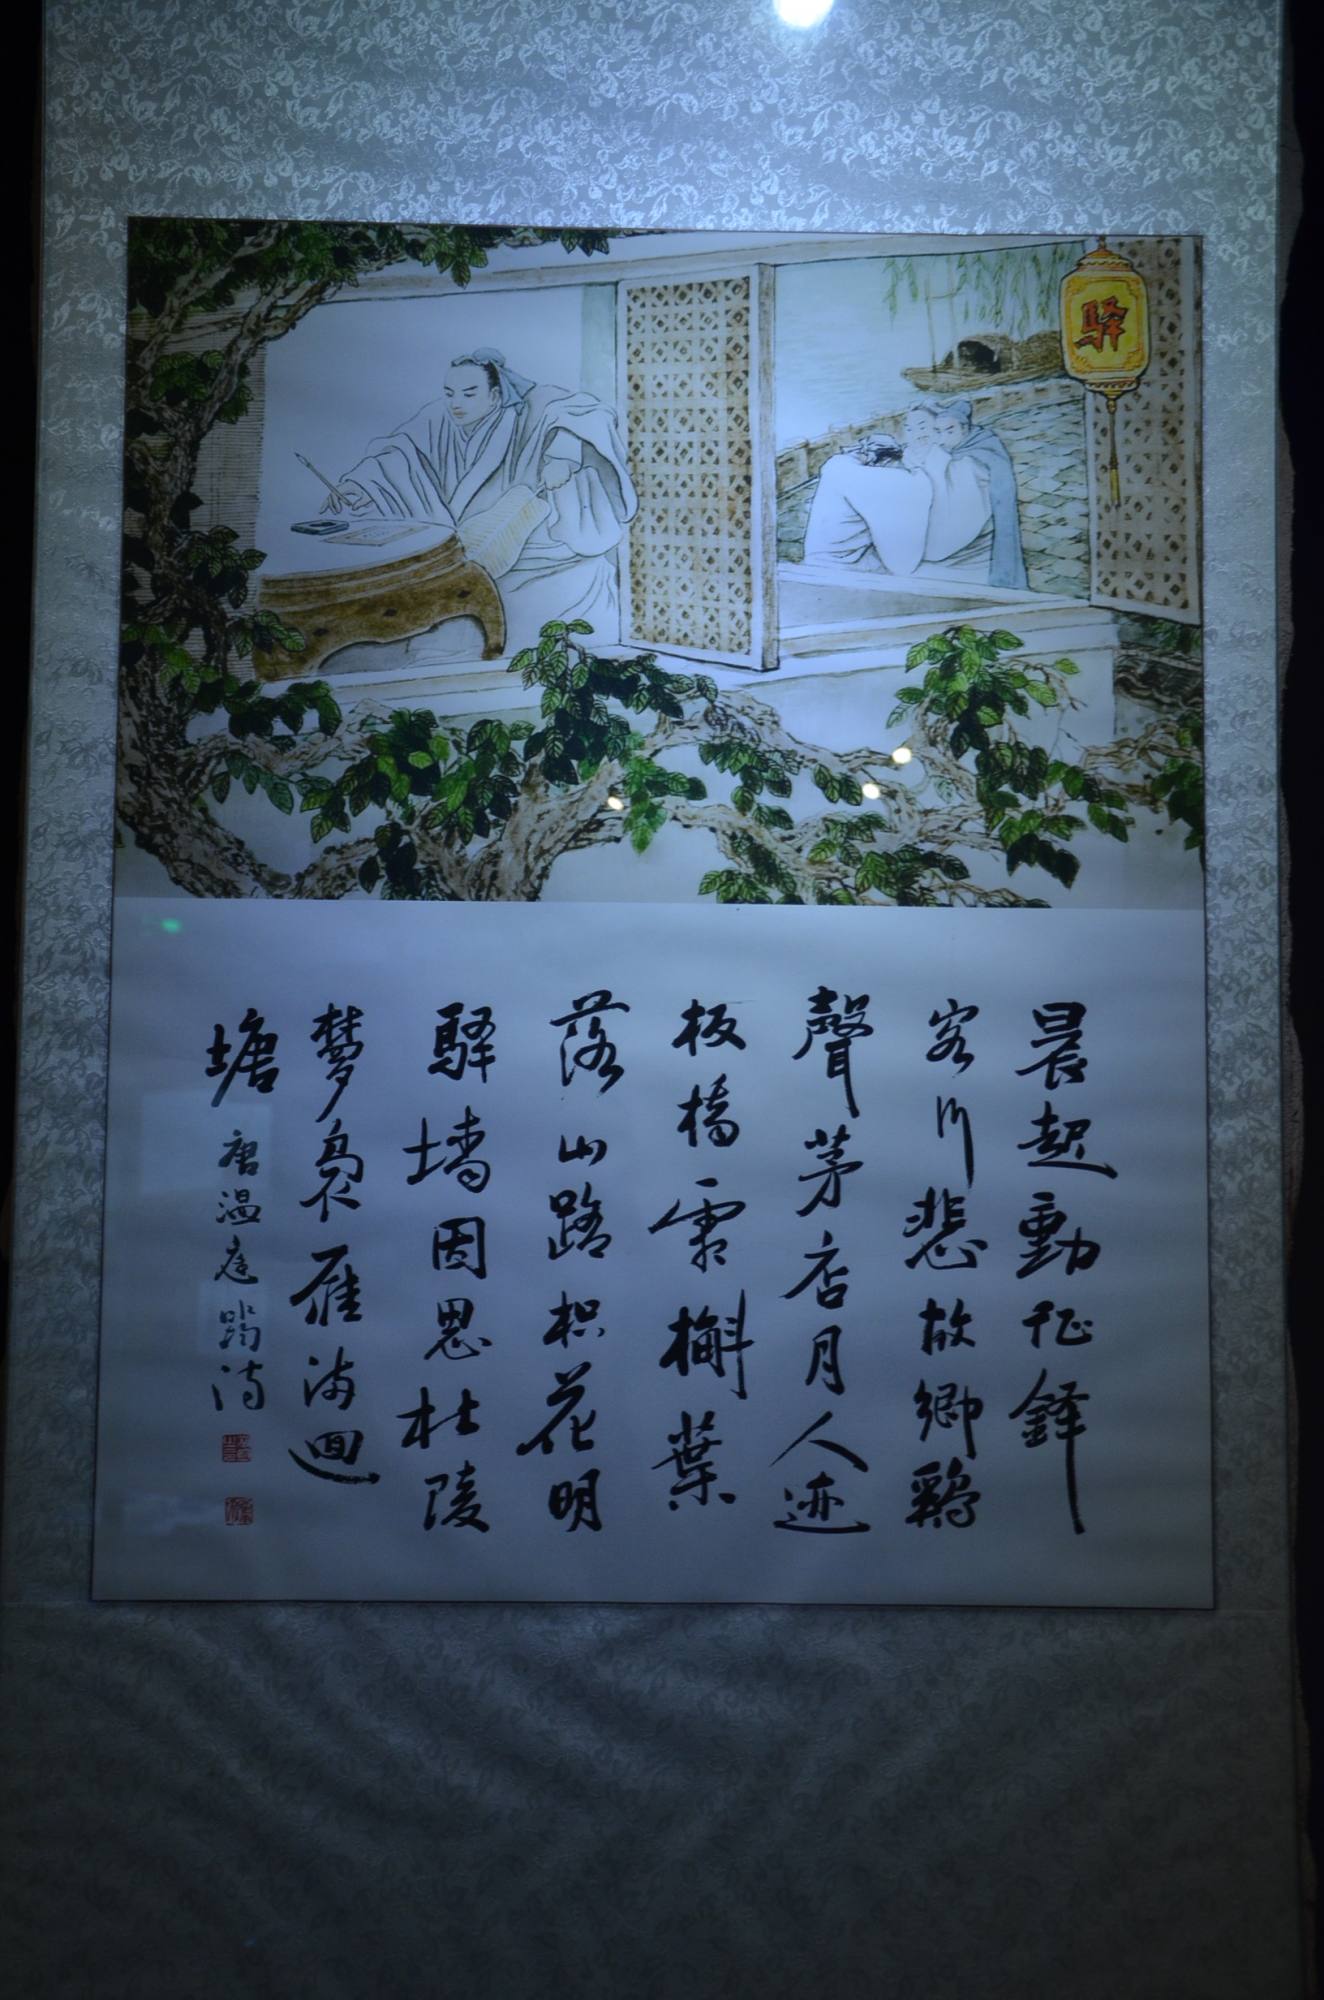 驿
晨起動征鐸
客行悲故鄉鷄
聲茅店月人迹
板橋霜槲葉
落山路枳花明
驿墙因思杜陵
梦凫雁满迴
塘 唐温庭
诗